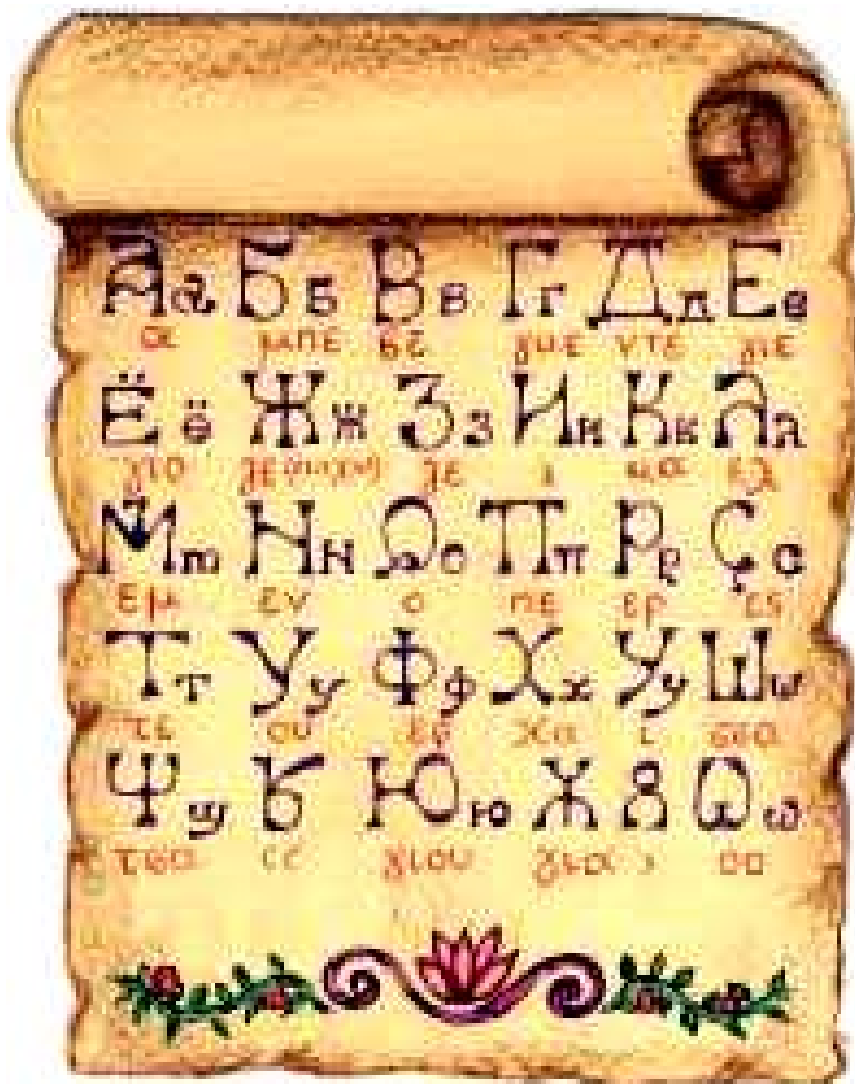 Аа Бб Вв Гг Дд Ее
α μπε βε γμε ντε γιε
Ёё Жж Зз Ии Кк Лл
γιο ζε ι κα ελ
Мм Нн Оо Пп Рр Сс
εμ εν ο πε ερ ες
Тт Уу Фф Хх Уу Шш
τε ου εφ χα ι σσα
Ψψ Юю Ж 8 Ѡѡ
τσα γιου